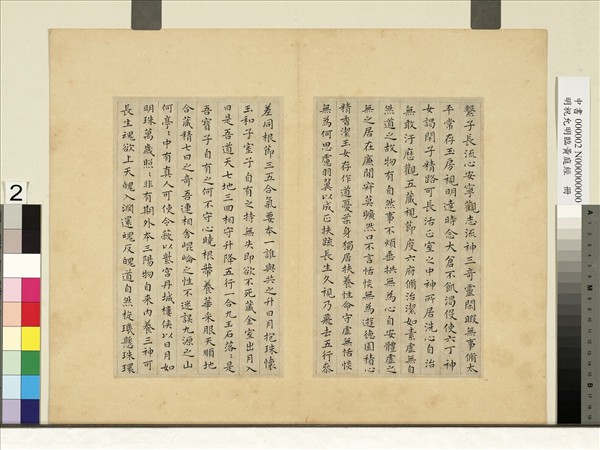 繫子長流心安寧觀志流神三奇靈閑暇無事脩太
平常存玉房視明達時念大倉不飢渴役使六丁神
女謁閉子精路可長活正室之中神所居洗心自治
無敢汙歷觀五藏視節度六府脩治潔如素虛無自
然道之故物有自然事不煩垂拱無為心自安體虛之
無之居在廉閒寂莫曠然口不言恬惔無為遊德園積心
精香潔玉女存作道憂柔身獨居扶養性命守虛無恬惔
無為何思慮羽翼以成正扶疏長生久視乃飛去五行參
差同根節三五合氣要本一誰與共之升日月抱珠懷
玉和子室子自有之持無失即欲不死藏金室出月入
日是吾道天七地三回相守升降五行一合九玉石落ゝ是
吾寶子自有之何不守心曉根蔕養華采服天順地
合藏精七日之奇吾連相舍崐崘之性不迷誤九源之山
何亭ゝ中有真人可使令蔽以紫宮丹城樓俠以日月如
明珠萬歲照ゝ非有期外本三陽物自來內養三神可
長生魂欲上天魄入淵還魂反魄道自然旋璣懸珠環
中書 000002 N000000000
明祝允明臨黃庭經 冊
2